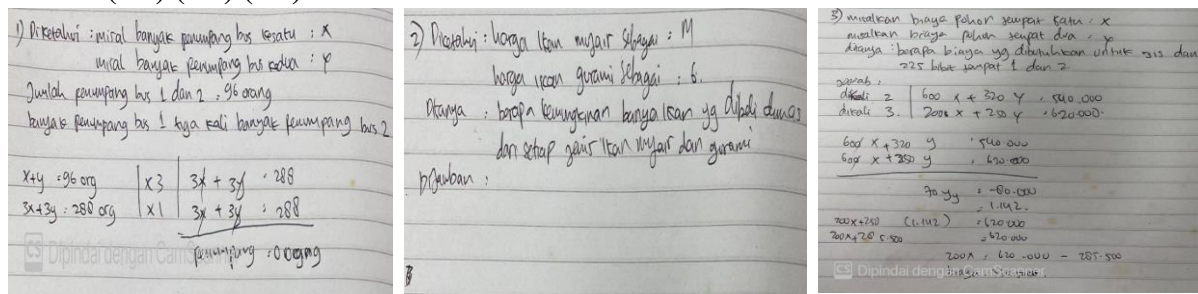 1) Diketahui : misal banyak penumpang bus kesatu : x
misal banyak penumpang bus kedua : y
Jumlah penumpang bus 1 dan 2 : 96 orang
banyak penumpang bus 1 tiga kali banyak penumpang bus 2
x+y = 96 org | x3 | 3x + 3y : 288
3x+3y : 288 org | x1 | 3x + 3y : 288
penumpang : 0 orang
CS Dipindai dengan CamScanner
2) Diketahui : harga ikan mujair sebagai : M
harga ikan gurami sebagai : G.
Ditanya : berapa kemungkinan banya ikan yg dibeli dimas
dari setiap jenis ikan mujair dan gurami
Jawaban :
3) misalkan biaya pohon tempat satu : x
misalkan biaya pohon tempat dua : y
ditanya : berapa biaya yg dibutuhkan untuk 315 dan
225 bibit tempat 1 dan 2
jawab :
dikali 2 | 600 x + 320 y : 540.000
dikali 3. | 200x + 250 y : 620.000.
600 x + 320 y : 540.000
600 x + 350 y : 620.000
70 yy = -80.000
= 1.142.
200x+250 (1.142) = 620.000
200x+285.500 = 620.000
200x = 620.000 - 285.500
CS Dipindai dengan CamScanner